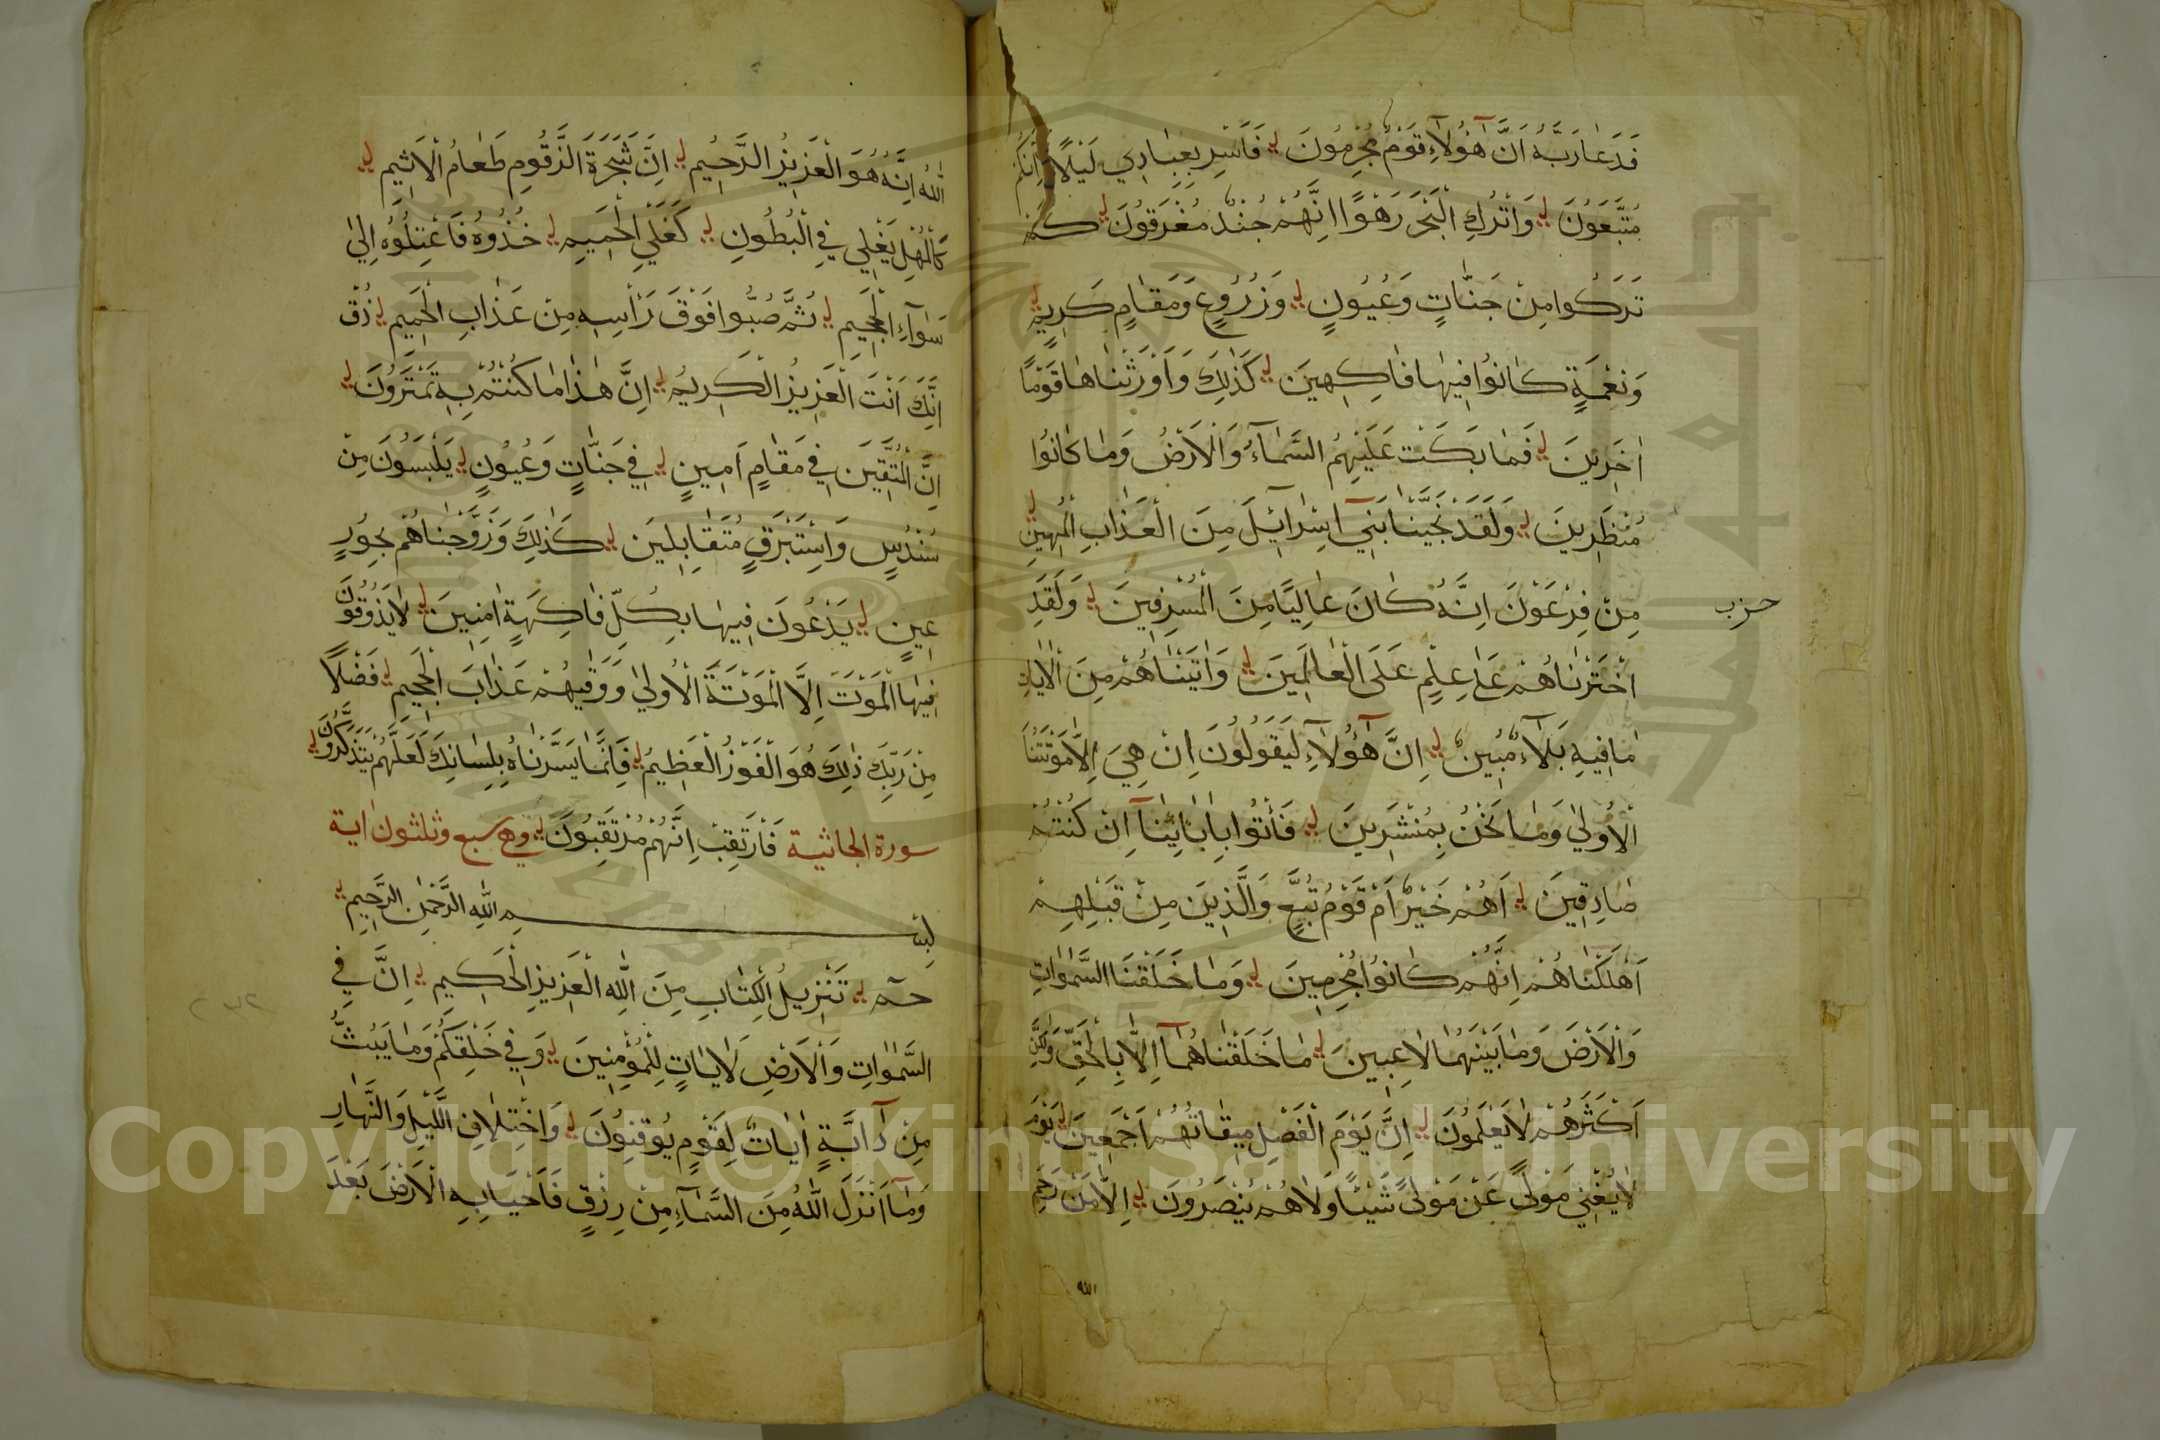 فَدَعَا رَبَّهُ اَنَّ هٰٓؤُلَآءِ قَوْمٌ مُجْرِمُونَ فَاَسْرِ بِعِبَادِي لَيْلًا اِنَّكُمْ
مُتَّبَعُونَ وَاتْرُكِ الْبَحْرَ رَهْوًا اِنَّهُمْ جُنْدٌ مُغْرَقُونَ كَمْ
تَرَكُوا مِنْ جَنَّاتٍ وَعُيُونٍ وَزُرُوعٍ وَمَقَامٍ كَرِيمٍ
وَنَعْمَةٍ كَانُوا فِيهَا فَاكِهِينَ كَذٰلِكَ وَاَوْرَثْنَاهَا قَوْمًا
اٰخَرِينَ فَمَا بَكَتْ عَلَيْهِمُ السَّمَآءُ وَالْاَرْضُ وَمَا كَانُوا
مُنْظَرِينَ وَلَقَدْ نَجَّيْنَا بَنِيٓ اِسْرَآئِيلَ مِنَ الْعَذَابِ الْمُهِينِ
مِنْ فِرْعَوْنَ اِنَّهُ كَانَ عَالِيًا مِنَ الْمُسْرِفِينَ وَلَقَدِ
حزب
اخْتَرْنَاهُمْ عَلٰى عِلْمٍ عَلَى الْعَالَمِينَ وَاٰتَيْنَاهُمْ مِنَ الْاٰيَاتِ
مَا فِيهِ بَلَآءٌ مُبِينٌ اِنَّ هٰٓؤُلَآءِ لَيَقُولُونَ اِنْ هِيَ اِلَّا مَوْتَتُنَا
الْاُولٰى وَمَا نَحْنُ بِمُنْشَرِينَ فَأْتُوا بِاٰبَائِنَآ اِنْ كُنْتُمْ
صَادِقِينَ اَهُمْ خَيْرٌ اَمْ قَوْمُ تُبَّعٍ وَالَّذِينَ مِنْ قَبْلِهِمْ
اَهْلَكْنَاهُمْ اِنَّهُمْ كَانُوا مُجْرِمِينَ وَمَا خَلَقْنَا السَّمٰوَاتِ
وَالْاَرْضَ وَمَا بَيْنَهُمَا لَاعِبِينَ مَا خَلَقْنَاهُمَآ اِلَّا بِالْحَقِّ وَلٰكِنَّ
اَكْثَرَهُمْ لَا يَعْلَمُونَ اِنَّ يَوْمَ الْفَصْلِ مِيقَاتُهُمْ اَجْمَعِينَ يَوْمَ
لَا يُغْنِي مَوْلًى عَنْ مَوْلًى شَيْئًا وَلَا هُمْ يُنْصَرُونَ اِلَّا مَنْ رَحِمَ
الله
اللهُ اِنَّهُ هُوَ الْعَزِيزُ الرَّحِيمُ اِنَّ شَجَرَةَ الزَّقُومِ طَعَامُ الْاَثِيمِ
كَالْمُهْلِ يَغْلِي فِي الْبُطُونِ كَغَلْيِ الْحَمِيمِ خُذُوهُ فَاعْتِلُوهُ اِلٰى
سَوَآءِ الْجَحِيمِ ثُمَّ صُبُّوا فَوْقَ رَأْسِهِ مِنْ عَذَابِ الْحَمِيمِ ذُقْ
اِنَّكَ اَنْتَ الْعَزِيزُ الْكَرِيمُ اِنَّ هٰذَا مَا كُنْتُمْ بِهِ تَمْتَرُونَ
اِنَّ الْمُتَّقِينَ فِي مَقَامٍ اَمِينٍ فِي جَنَّاتٍ وَعُيُونٍ يَلْبَسُونَ مِنْ
سُنْدُسٍ وَاِسْتَبْرَقٍ مُتَقَابِلِينَ كَذٰلِكَ وَزَوَّجْنَاهُمْ بِحُورٍ
عِينٍ يَدْعُونَ فِيهَا بِكُلِّ فَاكِهَةٍ اٰمِنِينَ لَا يَذُوقُونَ
فِيهَا الْمَوْتَ اِلَّا الْمَوْتَةَ الْاُولٰى وَوَقٰيهُمْ عَذَابَ الْجَحِيمِ فَضْلًا
مِنْ رَبِّكَ ذٰلِكَ هُوَ الْفَوْزُ الْعَظِيمُ فَاِنَّمَا يَسَّرْنَاهُ بِلِسَانِكَ لَعَلَّهُمْ يَتَذَكَّرُونَ
سورة الجاثية فَارْتَقِبْ اِنَّهُمْ مُرْتَقِبُونَ وهي سبع وثلثون اية
بِسْمِ اللهِ الرَّحْمٰنِ الرَّحِيمِ
حٰمٓ تَنْزِيلُ الْكِتَابِ مِنَ اللهِ الْعَزِيزِ الْحَكِيمِ اِنَّ فِي
السَّمٰوَاتِ وَالْاَرْضِ لَاٰيَاتٍ لِلْمُؤْمِنِينَ وَفِي خَلْقِكُمْ وَمَا يَبُثُّ
مِنْ دَآبَّةٍ اٰيَاتٌ لِقَوْمٍ يُوقِنُونَ وَاخْتِلَافِ الَّيْلِ وَالنَّهَارِ
وَمَآ اَنْزَلَ اللهُ مِنَ السَّمَآءِ مِنْ رِزْقٍ فَاَحْيَا بِهِ الْاَرْضَ بَعْدَ
Copyright © King Saud University